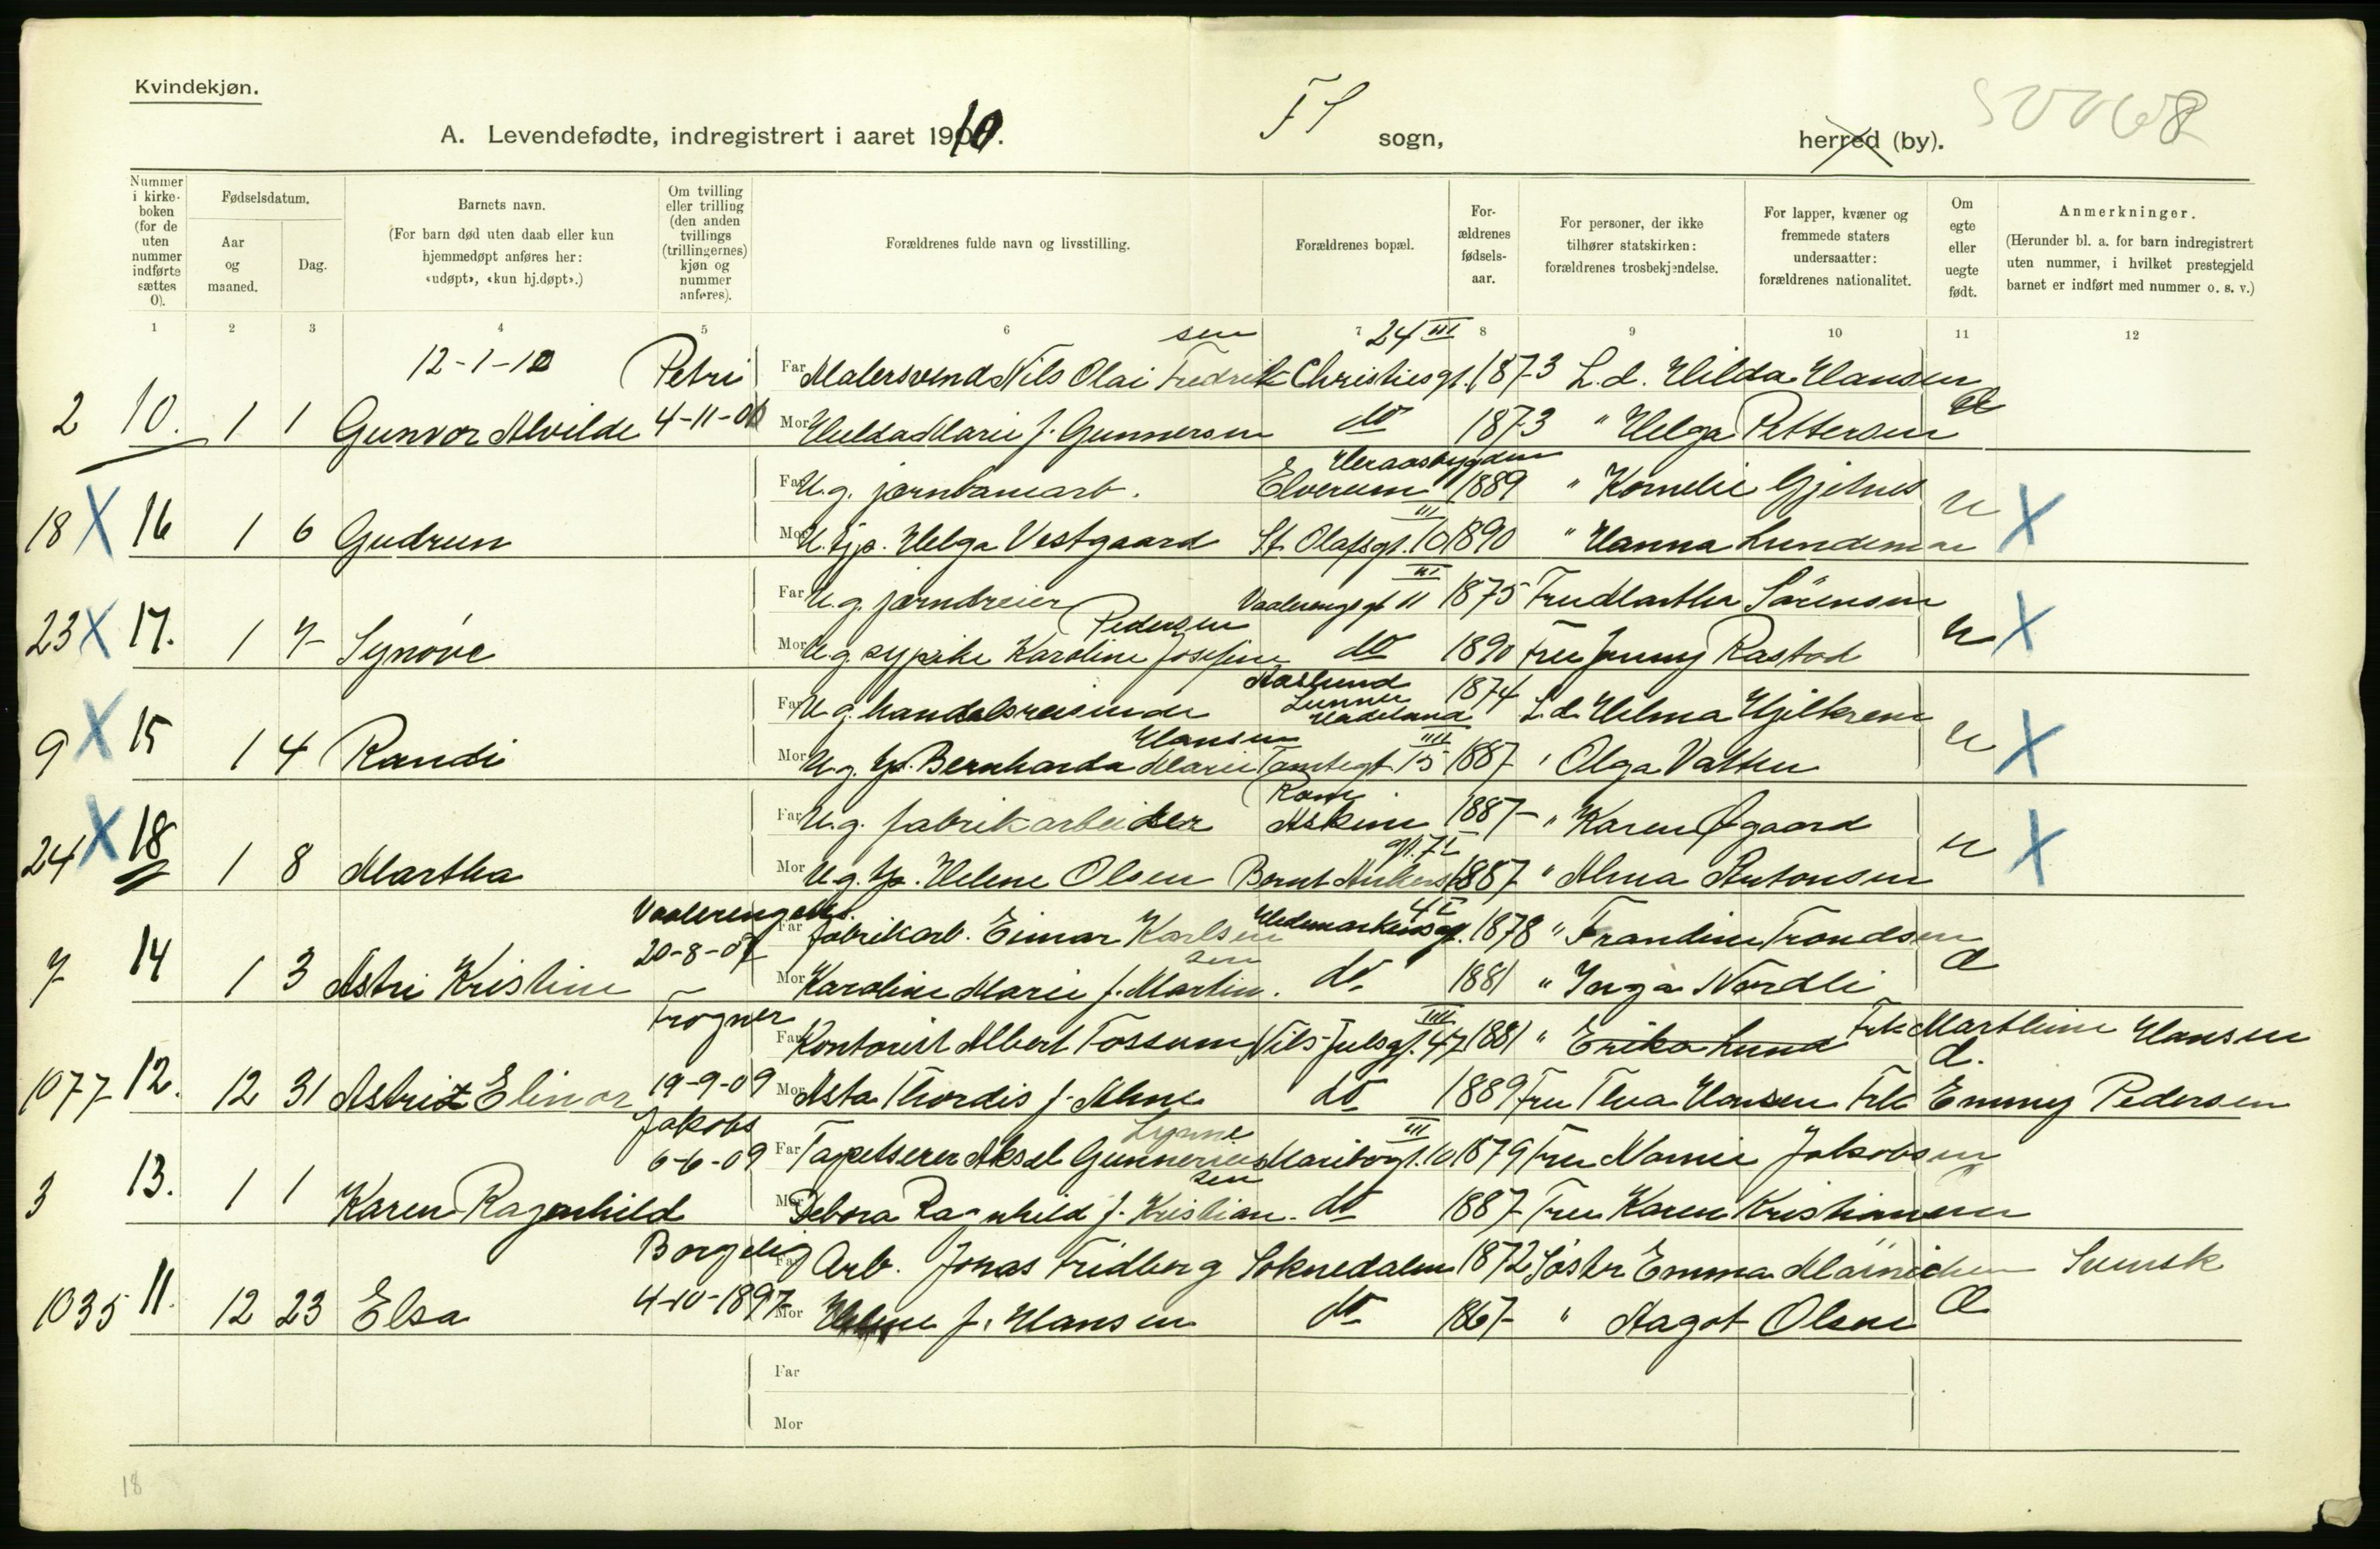 Kvindekjøn.
A. Levendefødte, indregistrert i aaret 1910. FS sogn, herred (by).
Nummer i kirkeboken (for de uten nummer indførte sættes 0).
Fødselsdatum.
Aar og maaned.
Dag.
Barnets navn.
(For barn død uten daab eller kun hjemmedøpt anføres her: «udøpt», «kun hj.døpt».)
Om tvilling eller trilling (den anden tvillings (trillingernes) kjøn og nummer anføres).
Forældrenes fulde navn og livsstilling.
Forældrenes bopæl.
Forældrenes fødselsaar.
For personer, der ikke tilhører statskirken: forældrenes trosbekjendelse.
For lapper, kvæner og fremmede staters undersaatter: forældrenes nationalitet.
Om egte eller uegte født.
Anmerkninger.
(Herunder bl. a. for barn indregistrert uten nummer, i hvilket prestegjeld barnet er indført med nummer o. s. v.)
1 2 3 4 5 6 7 8 9 10 11 12
12-1-10 Petri Far Malersvend Nils Olai Fredriksen Christiesgt. 24 III 1873 L.d. Hilda Hansen
2 10. 1 1 Gunvor Alvilde 4-11-06 Mor Hulda Marie f. Gunnersen do 1873 " Helga Pettersen
Far U.g. jernbanearb. Heraasbygden Elverum 1889 " Kornelie Gjetnes u
18 X 16 1 6 Gudrun Mor U. tjp. Helga Vestgaard St. Olafsgt. 10 III 1890 " Hanna Lundemoe X
Far U.g. jerndreier Vaalerengsgt 11 III 1875 Fru Martha Sörensen
23 X 17. 1 7 Synöve Mor U.g. sypike Karoline Josefine Pedersen do 1890 Fru Jenny Rastad u X
Far U.g. handelsreisende Aaslund Lunner Hadeland 1874 L.d. Helma Hjelkrem
9 X 15 1 4 Randi Mor U.g. tjp. Bernharda Marie Hansen Tomtegt 15 IIII 1887 " Olga Vatten u X
Far U.g. fabrikarbeider Kom Askim 1887 " Karen Øgaard
24 X 18 1 8 Martha Mor U.g. tjp. Helene Olsen Bernt Ankers gt. 7 I 1887 " Alma Antonsen u X
Vaalerengens Far fabrikarb. Einar Karlsen Hedemarkensgt. 4 I 1878 " Frandine Trondsen
7 14 1 3 Astri Kristine 20-8-04 Mor Karoline Marie f. Martinsen do. 1881 " Inga Nordli
Frogner Far Kontorist Albert Fossum Nils Julsgt. 47 IIII 1881 " Erika Lund Frk Marthine Hansen
1077 12. 12 31 Astrid Elinor 19-9-09 Mor Asta Thordis f. Alme do 1889 Fru Thea Hansen Frk Emmy Pedersen
Jakobs 6-6-09 Far Tapetserer Aksel Gunnerius Lynne Maribogt. 10 III 1879 Fru Namie Jakobsen
3 13. 1 1 Karen Ragnhild Mor Debora Ragnhild f. Kristiansen do 1887 Fru Karen Kristiansen
Borgelig Far Arb. Jonas Fridberg Soknedalen 1872 Söster Emma Svensk
1035 11. 12 23 Elsa 4-10-1897 Mor Helene f. Hansen do 1867 " Aagot Olsen
Far
Mor
18